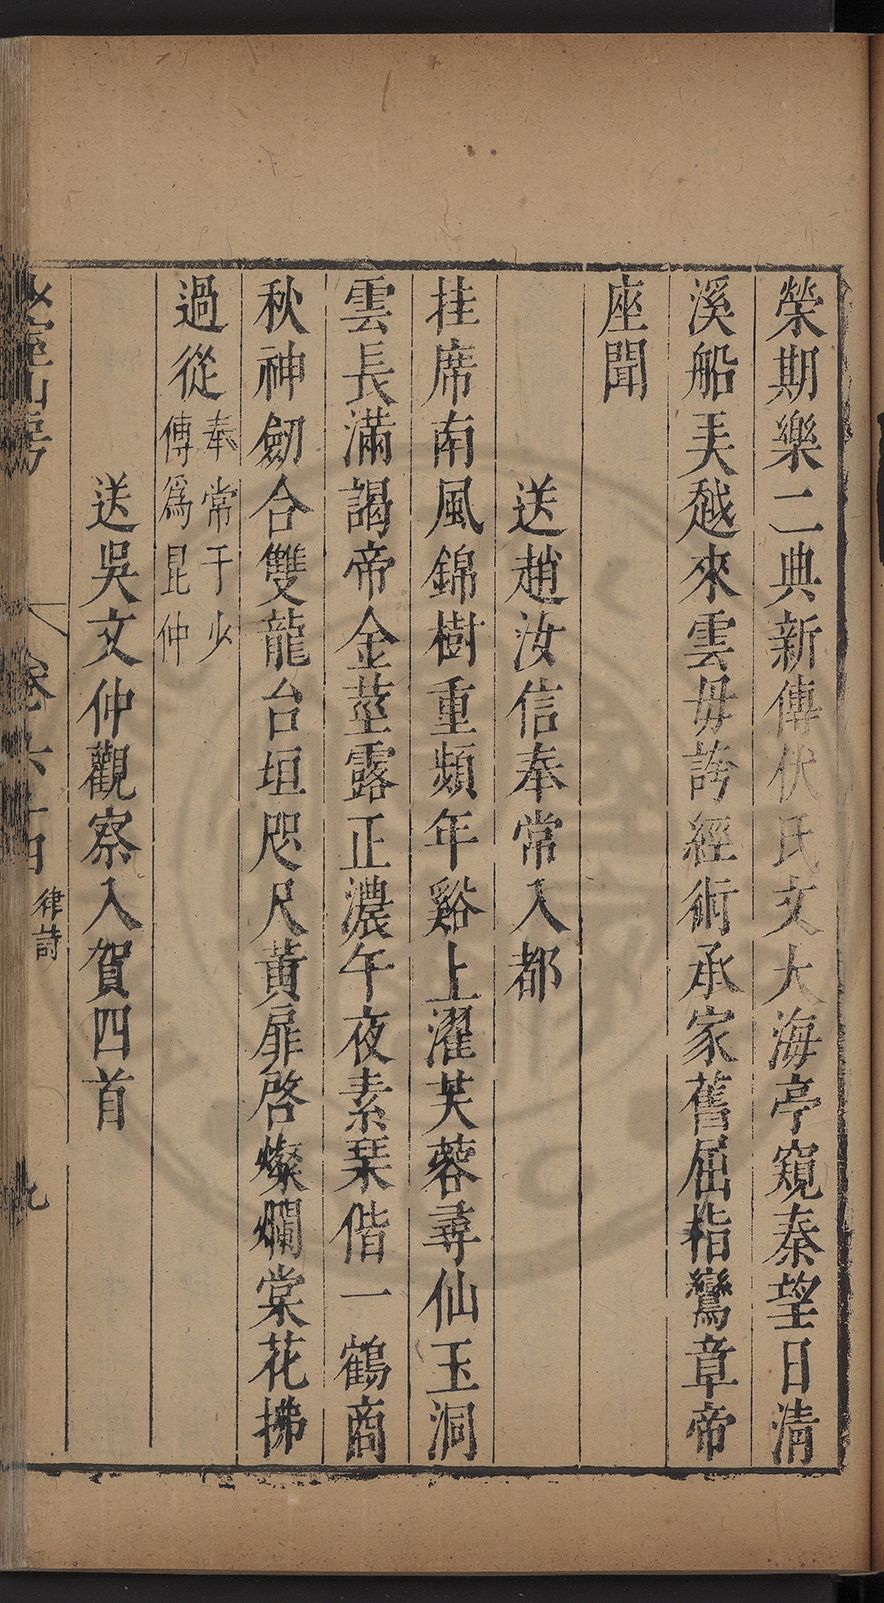 榮期樂二典新傳伏氏文大海亭窺秦望日清
溪船芙越來雲毋誇經術承家舊屈指鸞章帝
座聞
送趙汝信奉常入都
挂席南風錦樹重頻年谿上濯芙蓉尋仙玉洞
雲長滿謁帝金莖露正濃午夜素琹偕一鶴商
秋神劒合雙龍台垣咫尺黃扉啓燦爛棠花拂
過從奉常于少
傅爲昆仲
送吳文仲觀察入賀四首
室山房
卷六十四
律詩
九